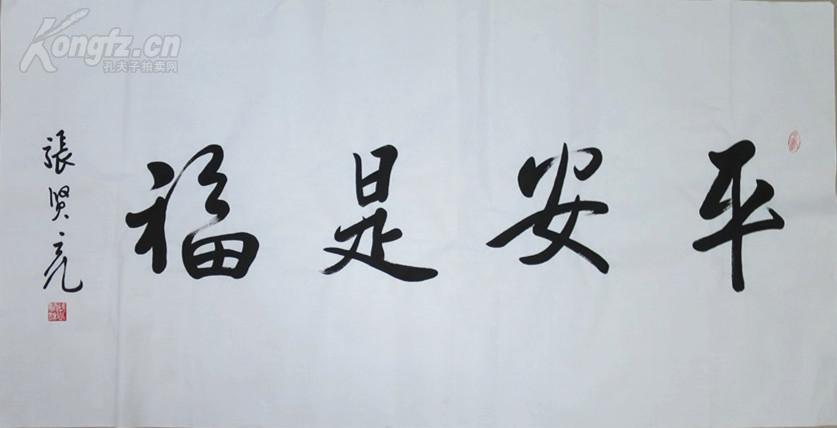 Kongfz.cn
孔夫子拍卖网
平安是福
張贤亮